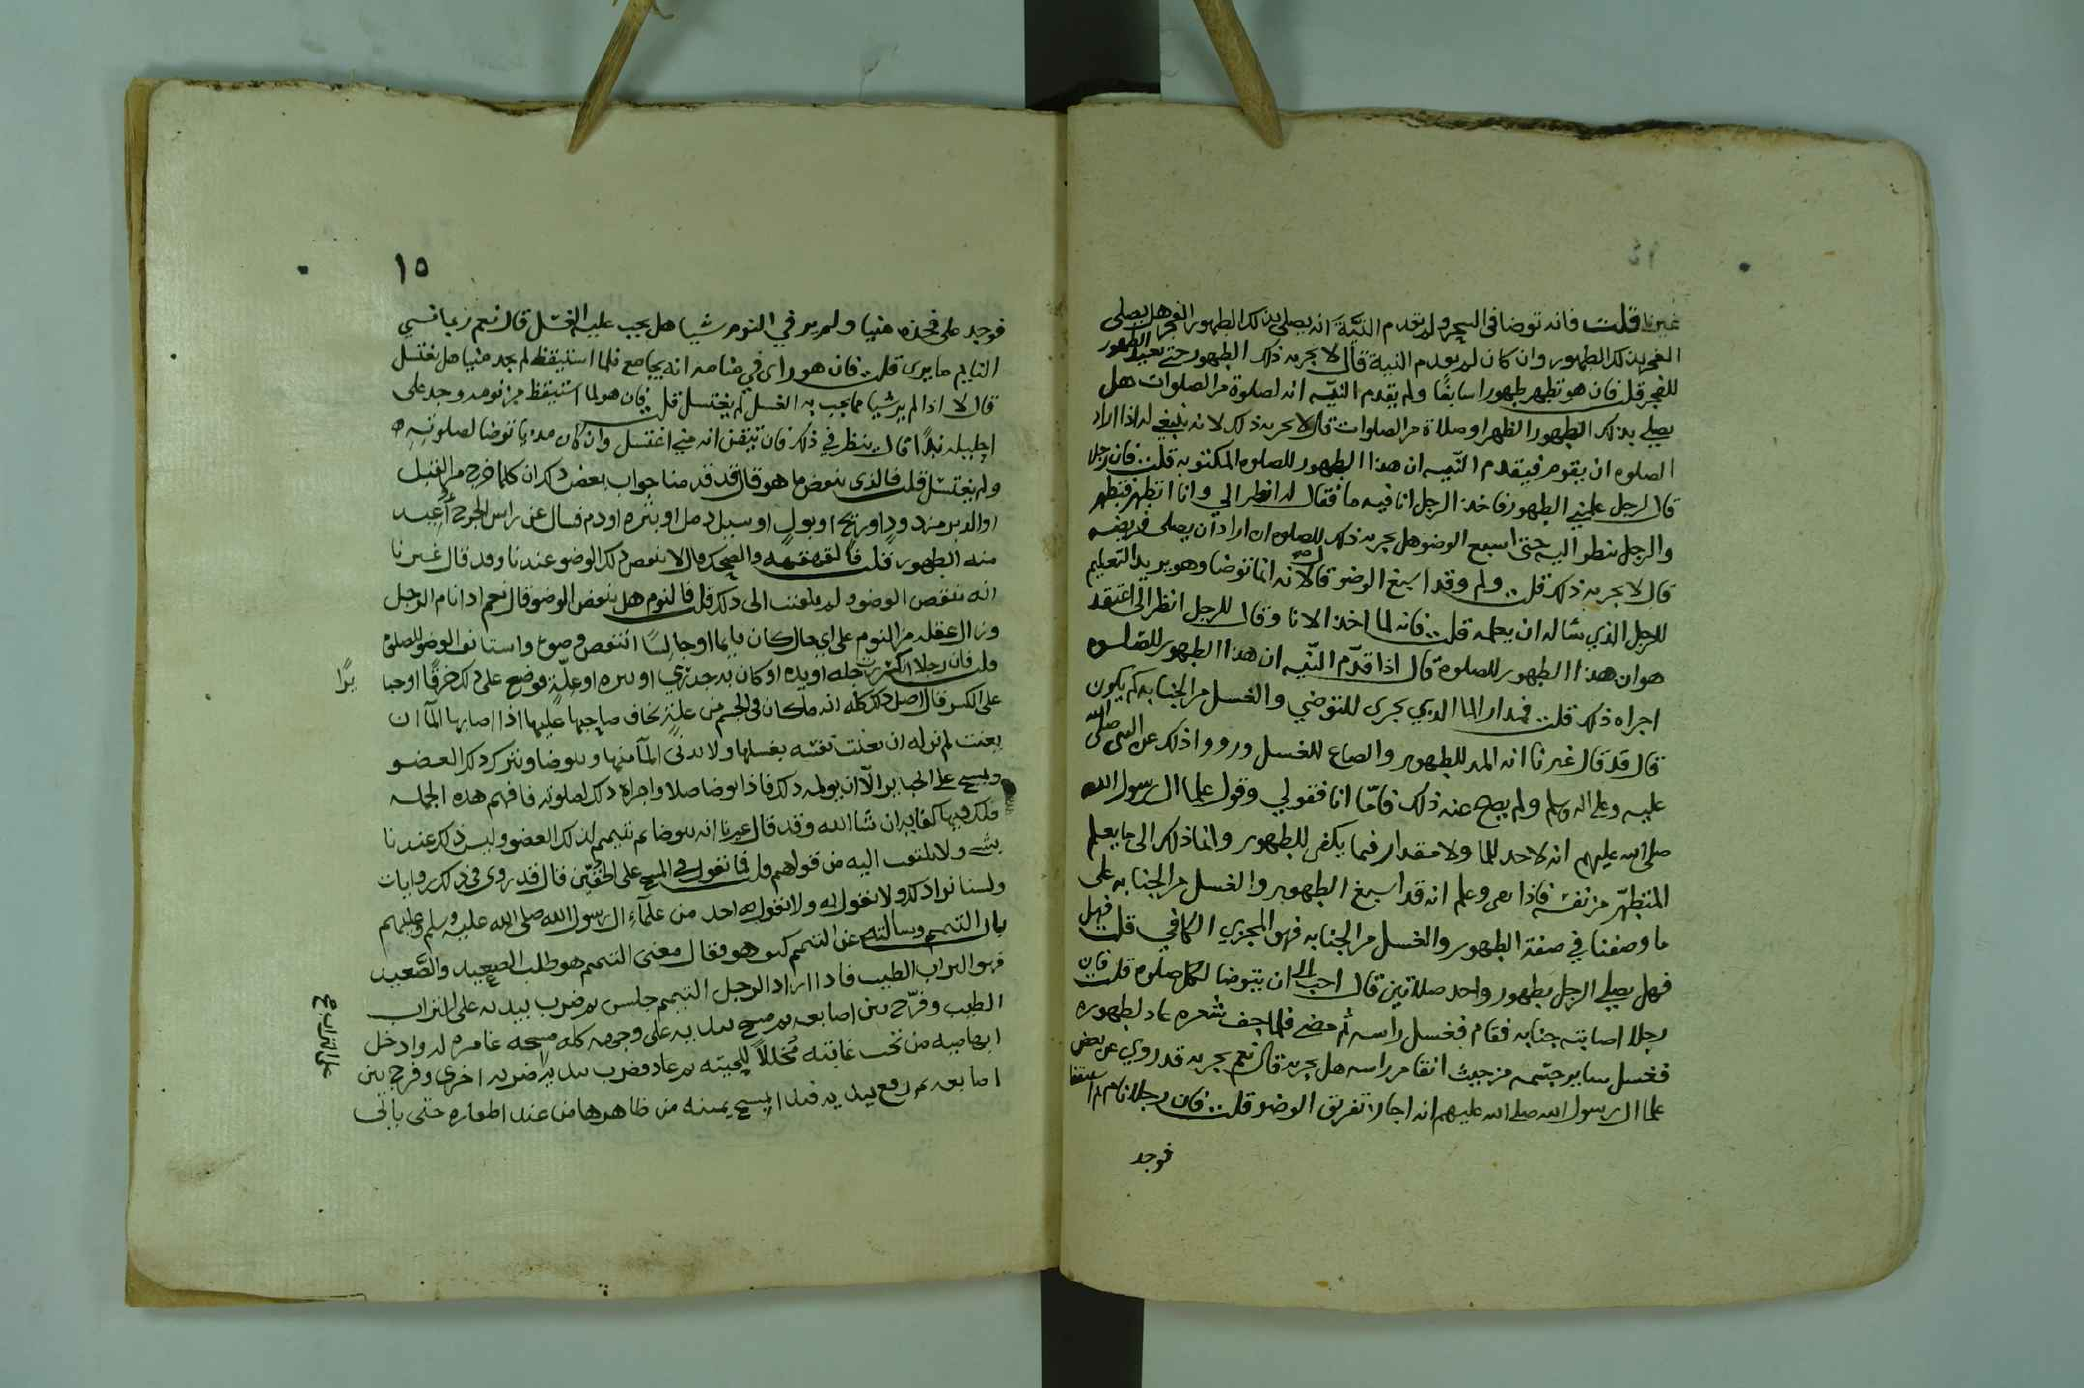 غيرنا قلت فانه توضا في السحر ولم يقدم النية انه يصلي بذلك الطهور الفجر هل يصلي
الفجر بذلك الطهور وان كان لم يقدم النية قال لا يجزيه ذلك الطهور حتى يعيد الطهور
للفجر قلت فان هو تطهر طهورا سابقا ولم يقدم النيه انه لصلوة من الصلوات هل
يصلي بذلك الطهور الظهر او صلاة من الصلوات قال لا يجزيه ذلك لانه ينبغي له اذا اراد
الصلوه ان يقوم فيقدم النيه ان هذا الطهور للصلوه المكتوبه قلت فان رجلا
قال لرجل علمني الطهور فاخذ الرجل انا فيه ما فقال له انظر الي وانا اتطهر فتطهر
والرجل ينظر اليه حتى اسبغ الوضو هل يجزيه ذلك للصلوه ان اراد ان يصلي فريضه
قال لا يجزيه ذلك قلت ولم وقد اسبغ الوضو قال لانه انما توضا وهو يريد التعليم
للرجل الذي ساله ان يعلمه قلت فانه لما اخذ الانا وقال للرجل انظر الي اعتقد
هو ان هذا الطهور للصلوة قال اذا قدم النيه ان هذا الطهور للصلوه
اجزاه ذلك قلت فمقدار الما الذي يجزي للتوضي والغسل من الجنابه كم يكون
قال قد قال غيرنا انه المد للطهور والصاع للغسل ورووا ذلك عن النبي صلى الله
عليه وعلى اله وسلم ولم يصح عنه ذلك فاما انا فقولي وقول علما ال رسول الله
صلى الله عليهم انه لا حد للما ولا مقدار فيما يكفي للطهور وانما ذلك الى ما يعلم
المتطهر من نفسه فاذا وعلم انه قد اسبغ الطهور والغسل من الجنابه على
ما وصفنا في صفة الطهور والغسل من الجنابه فهو المجزي الكافي قلت فهل
فهل يصلي الرجل بطهور واحد صلاتين قال احب الي ان يتوضا لكل صلوه قلت فان
رجلا اصابته جنابه فقام فغسل راسه ثم مضى فلما جف شعره عاد لطهوره
فغسل ساير جسمه من حيث انقا من راسه هل يجزيه قال نعم يجزيه قد روي عن بعض
علما ال رسول الله صلى الله عليهم انه اجاز تفريق الوضو قلت فان رجلا نام ثم استيقظ
فوجد
١٥
فوجد على فخذه منيا ولم ير في النوم شيا هل يجب عليه الغسل قال نعم ربما نسي
النايم ما يرى قلت فان هو راى في منامه انه يجامع فلما استيقظ لم يجد منيا هل يغتسل
قال لا اذا لم ير شيا مما يجب به الغسل لم يغتسل قلت فان هو لما استيقظ من نومه وجد على
احليله بللا قال ينظر في ذلك فان تيقن انه مني اغتسل وان كان مذيا توضا لصلوته
ولم يغتسل قلت فالذي ينقض ما هو قال قد قدمنا جواب بعض ذلك ان كلما خرج من القبل
او الدبر من دود او ريح او بول او سيل دمل او بثره او دم فسال عن راس الجرح اعيد
منه الطهور قلت فالقهقهه والضحك قال لا ينقض ذلك الوضو عندنا وقد قال غيرنا
انه ينقض الوضو ولم يلتفت الى ذلك قلت فالنوم هل ينقض الوضو قال نعم اذا نام الرجل
وزال عقله من النوم على اي حال كان قايما او جالسا انتقض وضوه واستانف الوضو للصلوه
قلت فان رجلا انكسرت رجله او يده او كان به جدري او او علة فوضع على ذلك خرقا او جبا
يرًا
على الكسر قال اصل ذلك كله انه ما كان في الجسم من علة يخاف صاحبها عليها اذا اصابها الما ان
يعنت لم نر له ان يعنت نفسه بغسلها ولا يدني الما منها ويتوضا ويترك ذلك العضو
ويمسح على الجباير الا ان يولمه ذلك فاذا توضا صلا واجزاه ذلك لصلوته فافهم هذه الجمله
ففيها كفايه ان شا الله وقد قال غيرنا انه يتوضا ثم يتيمم لذلك العضو وليس ذلك عندنا
بشي ولا يلتفت اليه من قولهم قلت فما تقول في المسح على الخفين قال قد روي في ذلك روايات
ولسنا نرا ذلك ولا نقول به ولا يقول به احد من علماء ال رسول الله صلى الله عليه وسلم وعليهم
باب التيمم وسالته عن التيمم كيف هو فقال معنى التيمم هو طلب الصعيد والصعيد
فهو التراب الطيب فاذا اراد الرجل التيمم جلس ثم ضرب بيديه على التراب
الطيب وفرج بين اصابعه ثم مسح بيديه على وجهه كله مسحه غامره له وادخل
ابهاميه من تحت غابته مخللا للحيته ثم عاد فضرب بيديه ضربه اخرى وفرج بين
على التراب
اصابعه ثم رفع يديه فبدا يمسح يمينه من ظاهرها من عند اظفاره حتى ياتي